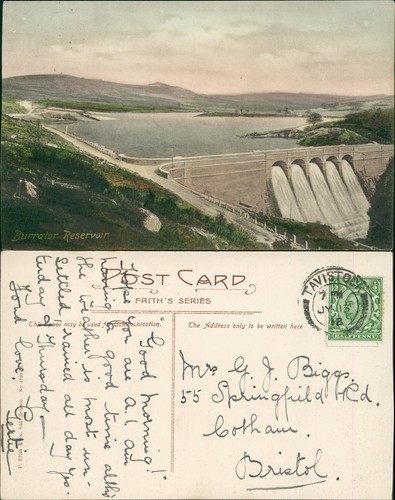 Burrator Reservoir
POST CARD
FRITH'S SERIES
This space may be used for communication.
The Address only to be written here
TAVISTOCK
HALFPENNY
"Good Morning!"
Hope you are A.1, and
having a good time altho'
the weather is most un-
settled, rained all day yes-
terday & Thursday.
Fond Love.
Gertie
Mrs G. J. Biggs.
55 Springfield Rd.
Cotham.
Bristol.